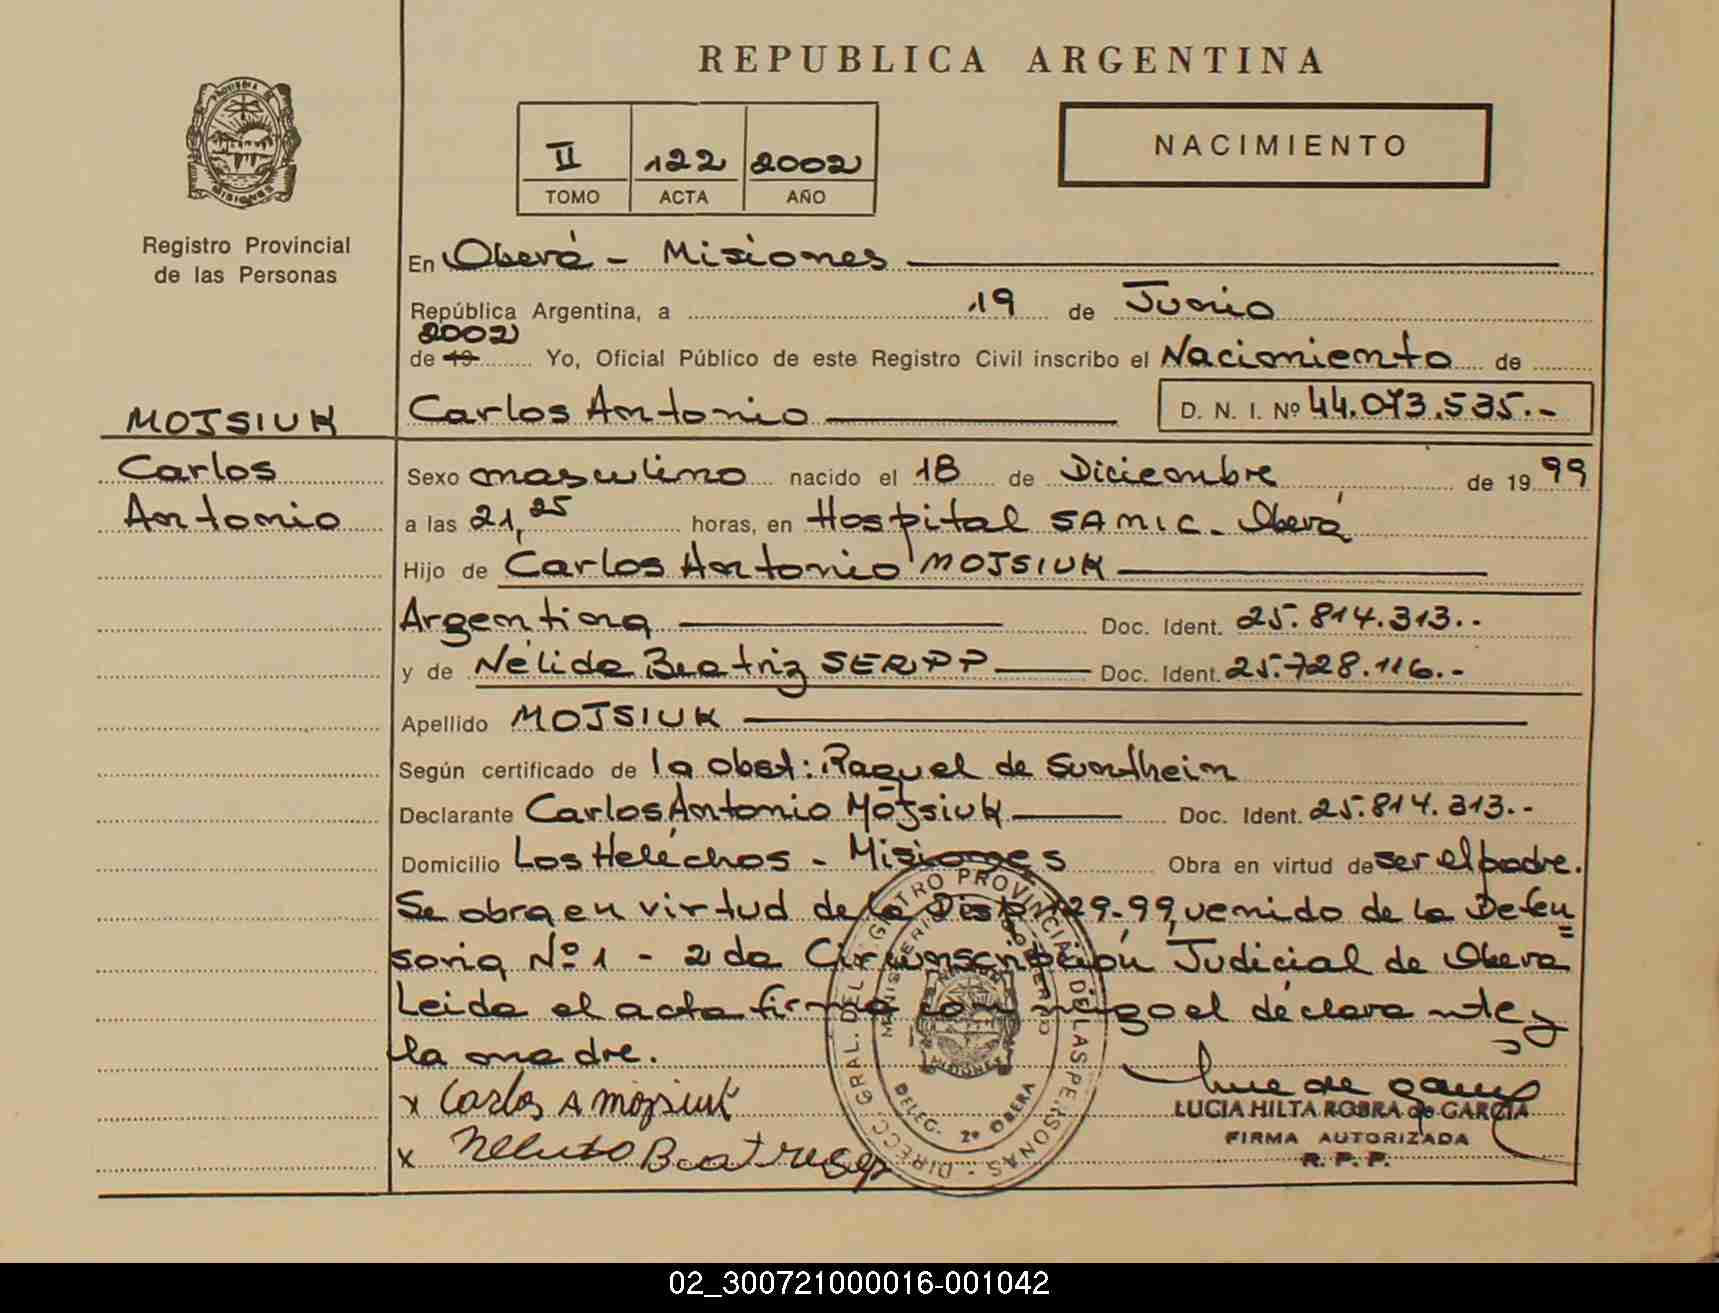 REPUBLICA ARGENTINA
PROVINCIA DE MISIONES
Registro Provincial
de las Personas
II 122 2002
TOMO ACTA AÑO
NACIMIENTO
En Oberá - Misiones
República Argentina, a 19 de Junio
2002
de 19 Yo, Oficial Público de este Registro Civil inscribo el Nacimiento de
MOJSIUK Carlos Antonio D. N. I. Nº 44.073.535.-
Carlos Sexo masculino nacido el 18 de Diciembre de 19 99
Antonio a las 21,25 horas, en Hospital SAMIC - Oberá
Hijo de Carlos Antonio MOJSIUK
Argentina Doc. Ident. 25.814.313.-
y de Nélida Beatriz SERPP Doc. Ident. 25.728.116.-
Apellido MOJSIUK
Según certificado de la obst: Raquel de Sundheim
Declarante Carlos Antonio Mojsiuk Doc. Ident. 25.814.313.-
Domicilio Los Heléchos - Misiones Obra en virtud de ser el padre.
Se obra en virtud de la Disp. 129-99, venido de la Defen
soria Nº 1 - 2da Circunscripción Judicial de Obera
Leida el acta firma conmigo el declarante y
la madre.
x Carlos A mojsiuk
x
DIRECC. GRAL. DEL REGISTRO PROVINCIAL DE LAS PERSONAS -
MINISTERIO DE GOBIERNO
MISIONES
DELEG. 2º OBERA
LUCIA HILTA ROBRA de GARCIA
FIRMA AUTORIZADA
R. P. P.
02_300721000016-001042